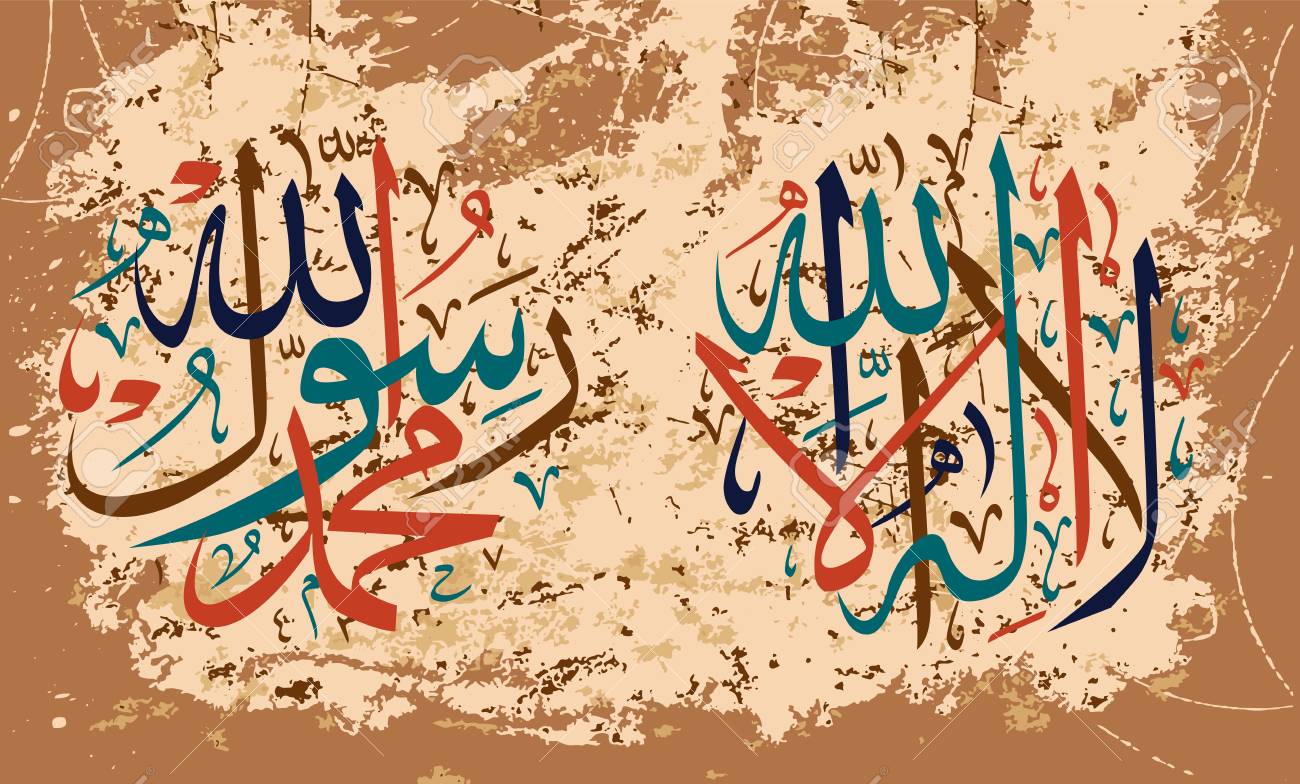 لا إله إلا الله
محمد رسول الله
123RF